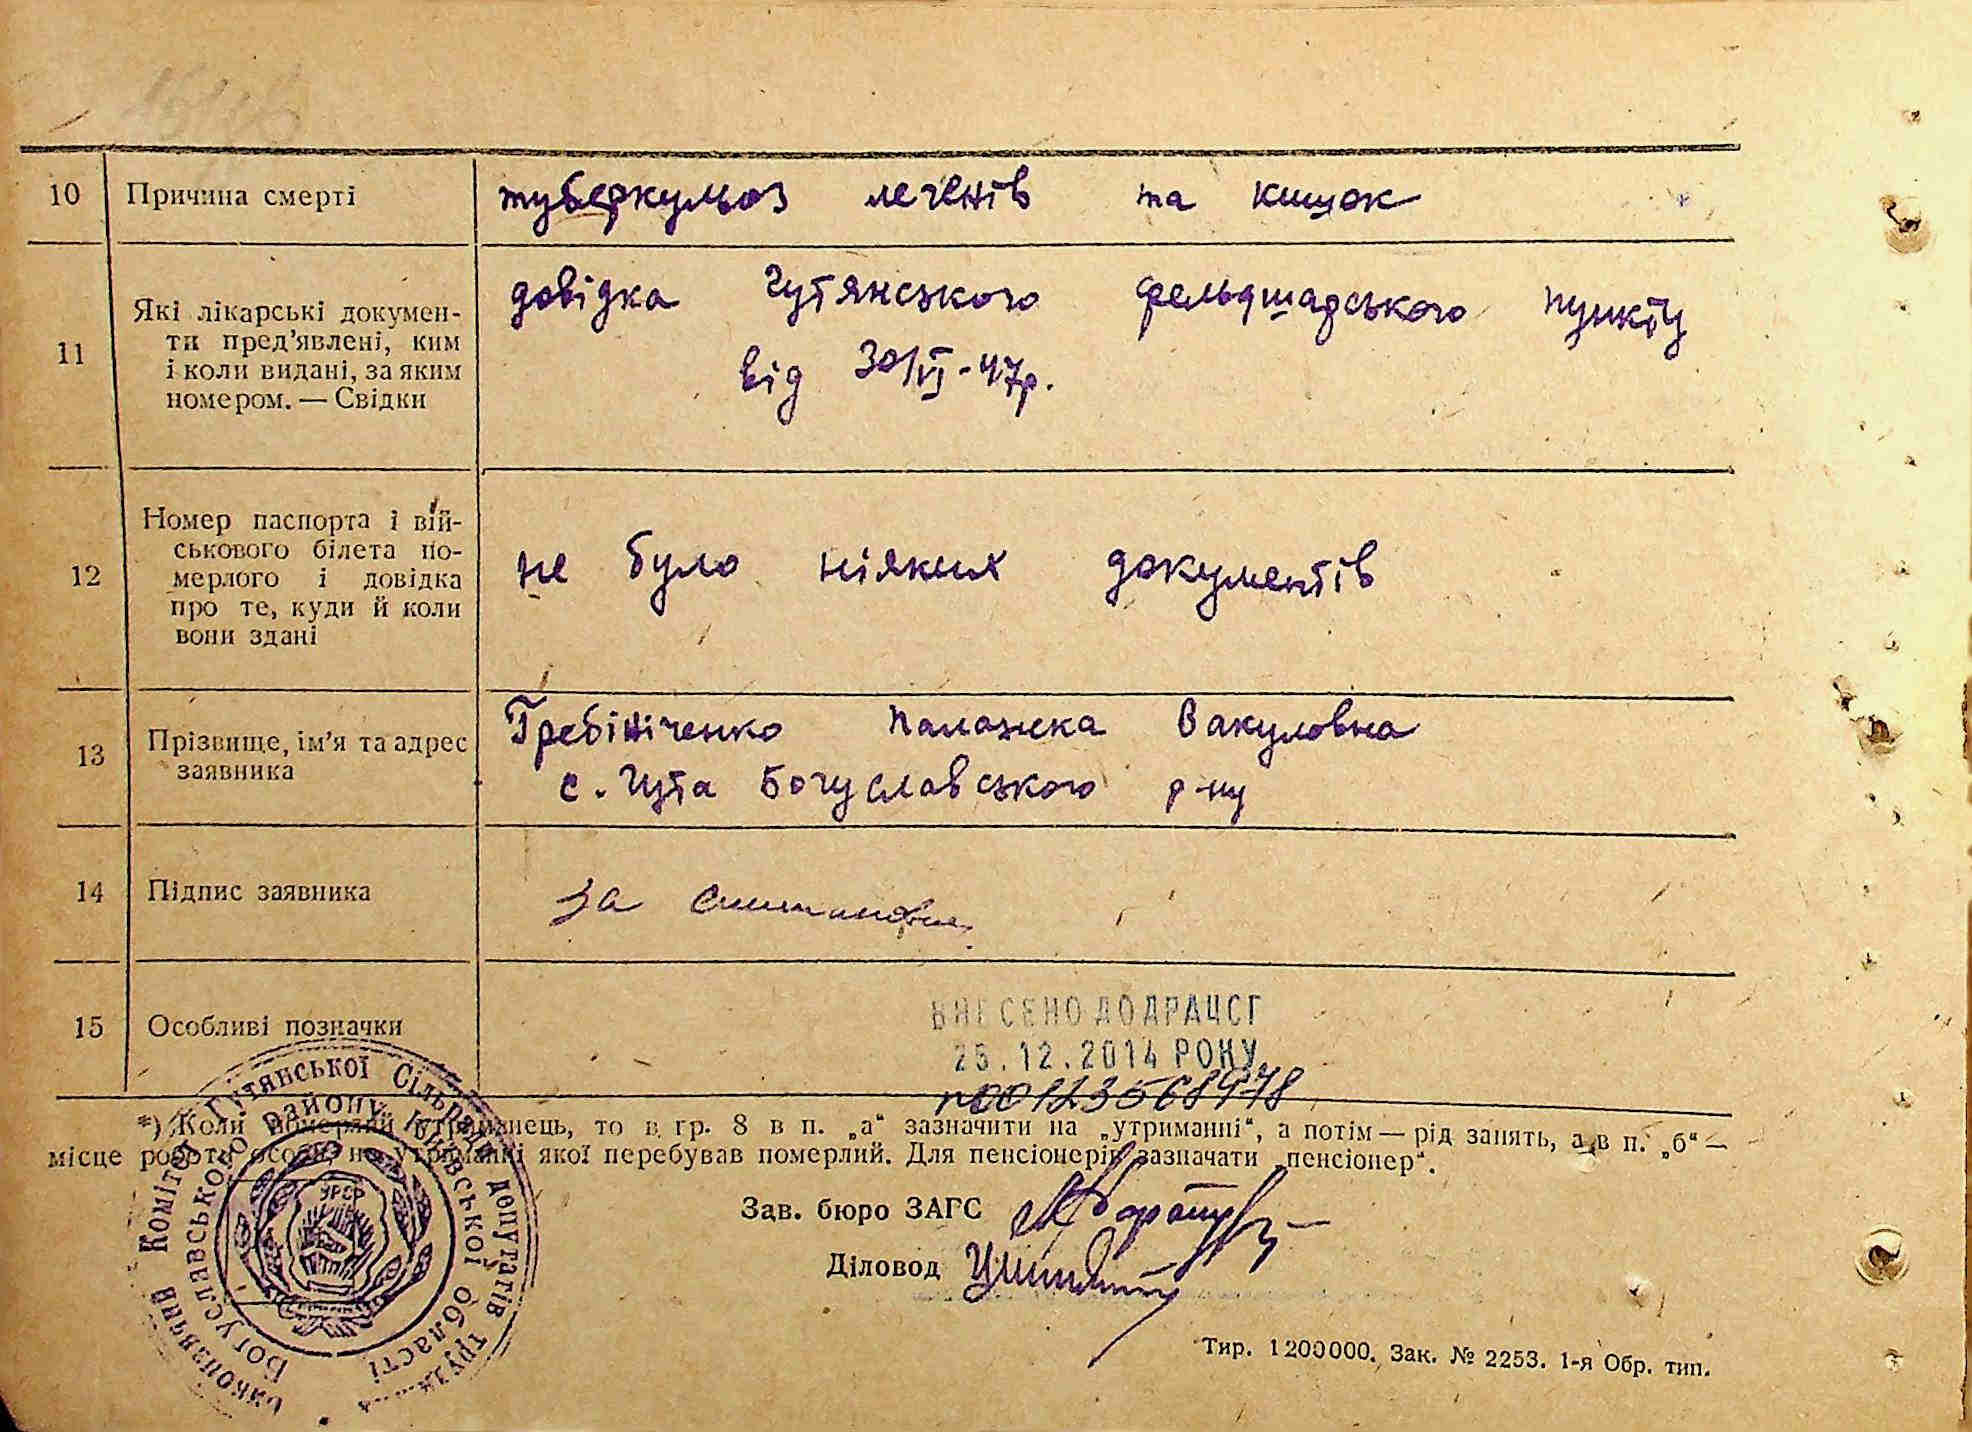 10 Причина смерті туберкульоз легенів та кишок
11 Які лікарські докумен-
ти пред'явлені, ким
і коли видані, за яким
номером. — Свідки
довідка Гутянського фельдшарського пункту
від 30/VI-47р.
12 Номер паспорта і вій-
ськового білета по-
мерлого і довідка
про те, куди й коли
вони здані
не було ніяких документів
13 Прізвище, ім'я та адрес
заявника
Гребініченко Палажка Вакуловна
с. Гута Богуславського р-ну
14 Підпис заявника за
15 Особливі позначки
ВНЕСЕНО ДО ДРАЦСГ
25.12.2014 РОКУ
№00123568978
*) Коли померлий утриманець, то в гр. 8 в п. „а“ зазначити на „утриманні“, а потім — рід занять, а в п. „б“ —
місце роботи особи, на утриманні якої перебував померлий. Для пенсіонерів зазначати „пенсіонер“.
Зав. бюро ЗАГС
Діловод
Виконавчий Комітет Гутянської Сільради депутатів труд
Богуславського району Київської області
УРСР
Тир. 1200000. Зак. № 2253. 1-я Обр. тип.